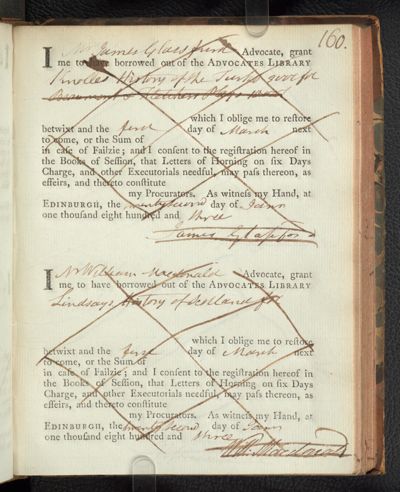 160.
I Mr James Glassfurd Advocate, grant
me to have borrowed out of the ADVOCATES LIBRARY
Knolles History of the Turks
Beaumont & Fletchers Plays
which I oblige me to reſtore
betwixt and the first day of March next
to come, or the Sum of
in caſe of Failzie; and I conſent to the regiſtration hereof in
the Books of Seſſion, that Letters of Horning on ſix Days
Charge, and other Executorials needful, may paſs thereon, as
effeirs, and thereto conſtitute
my Procurators. As witneſs my Hand, at
EDINBURGH, the twenty second day of Jany
one thouſand eight hundred and three
James Glassford
I Mr William Macdonald Advocate, grant
me, to have borrowed out of the ADVOCATES LIBRARY
Lindsays History of Scotland
which I oblige me to reſtore
betwixt and the first day of March next
to come, or the Sum of
in caſe of Failzie; and I conſent to the regiſtration hereof in
the Books of Seſſion, that Letters of Horning on ſix Days
Charge, and other Executorials needful, may paſs thereon, as
effeirs, and thereto conſtitute
my Procurators. As witneſs my Hand, at
EDINBURGH, the twenty second day of Jany
one thouſand eight hundred and three
Wm. Macdonald